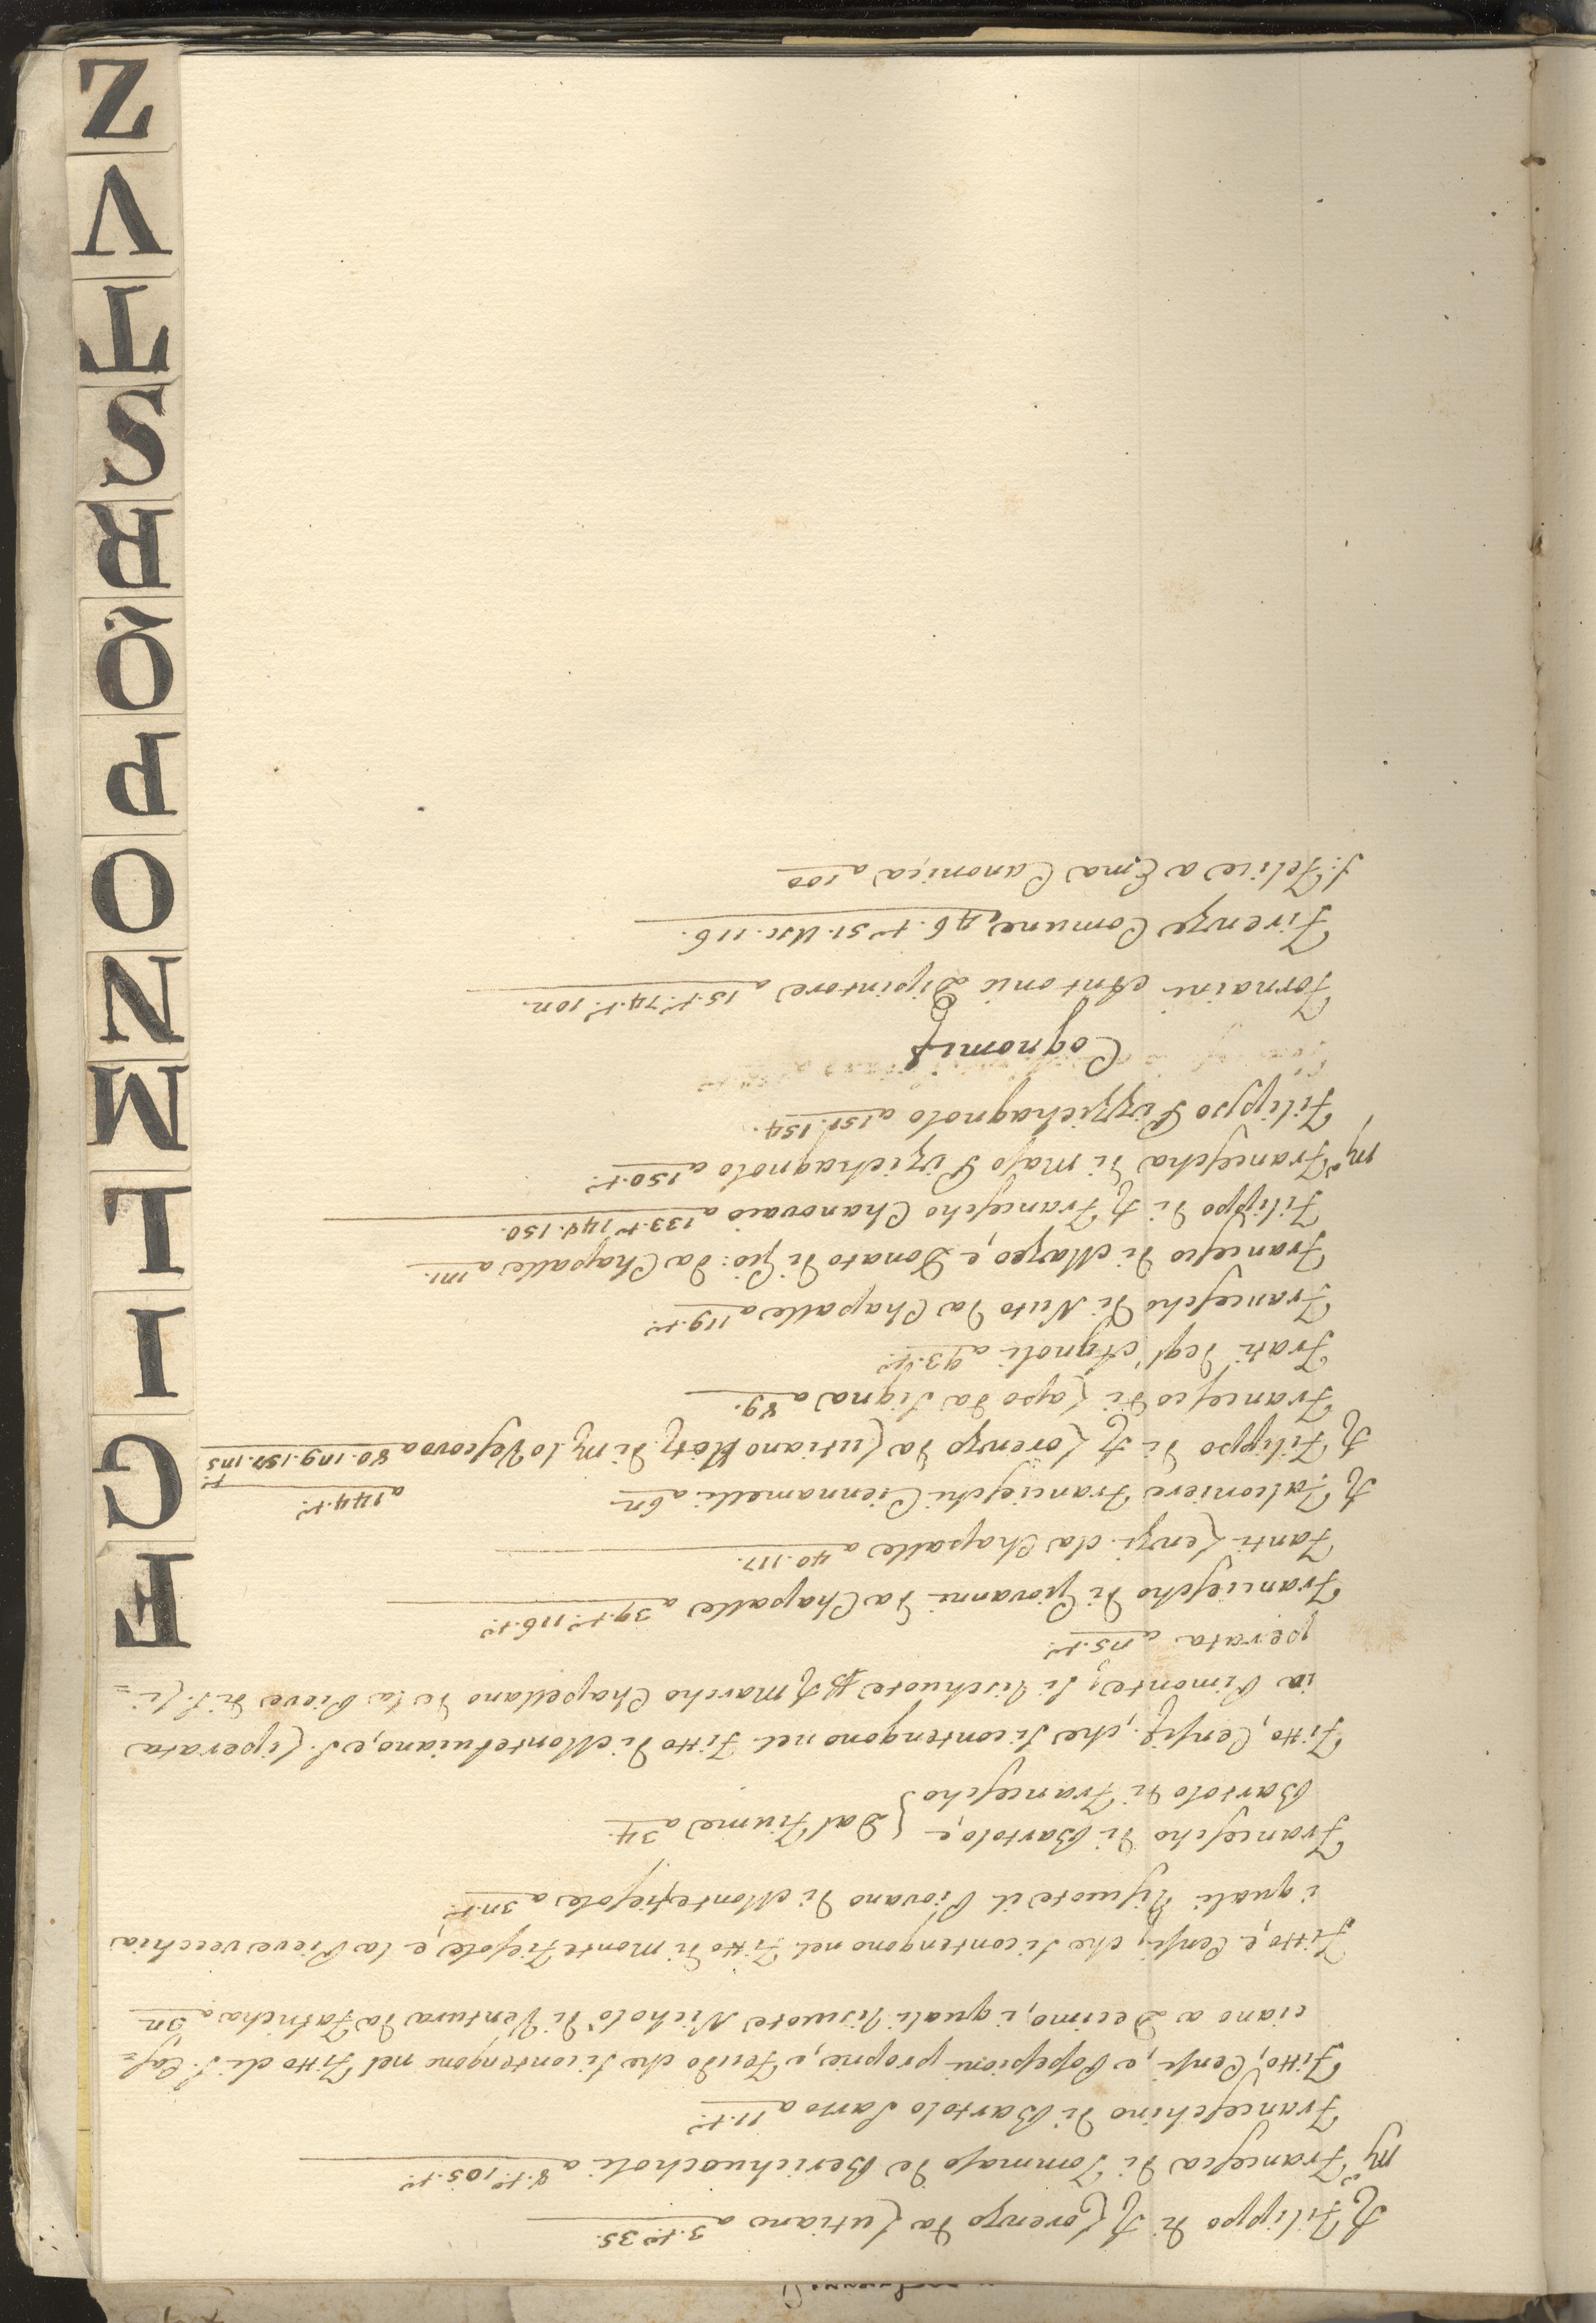 Ser Filippo di Ser Lorenzo da Lutiano a 3.to 35.
Ma Francesca di Tommaso de Berichuocholi a 8.to 105.to
Franceschino di Bartolo Sarto a 11.to
Fitto, Censi, e Possessioni proprie, e Feudo che si contengono nel Fitto di S. Cas=
ciano a Decimo, i quali risquote Nicholò di Ventura da
Fitto, e Censi, che si contengono nel Fitto di Monte Fiesole, e la Pieve vecchia
i quali risquote il Piovano di Montefiesole a 32.to
Francescho di Bartolo, e } Dal Fiume a 34.
Bartolo di Francescho
Fitto, Censi, che si contengono nel Fitto di e S. Liperata
ia Pimonte, si rischuote p Ser Marcho Chapellano de la Pieve di S. Li=
perata a 25.to
Franciescho di Giovanni da Chapalle a 39.to 116.to
Fanti Lenzi da Chapalle a 40.117.
Ser Falconiere Francieschi Ciennamelli a 62
a 144.to
Ser Filippo di Ser Lorenzo da Lutiano Not. di M. lo Vescovo a 80.
Francesco di Lapo da Signa a 89.
Frati degl' Agnoli a 93.to
Francescho di Nuto da Chapalle a 119.to
Francesco di Mazeo, e Donato di Gio: da Chapalle a 121.
Filippo di Ser Francescho Chanovaio a 133.to 148.150.
Ma Francescha di Maso Pizzichagnolo a 150.to
Filippo Pizzichagnolo a 151.154.
Cognomi
Fornaini Antonio Dipintore a 15.to 74.to 102.
Firenze Comune, 46.to 51. 116.
S. Felice a Ema Canonica a 100
F
G
I
L
M
N
O
P
Q
R
S
T
V
Z